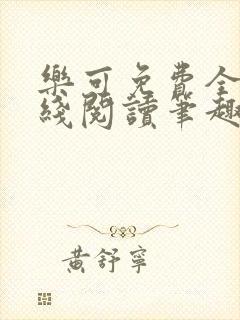 樂可免費全
綫閱讀筆趣
黃舒寧